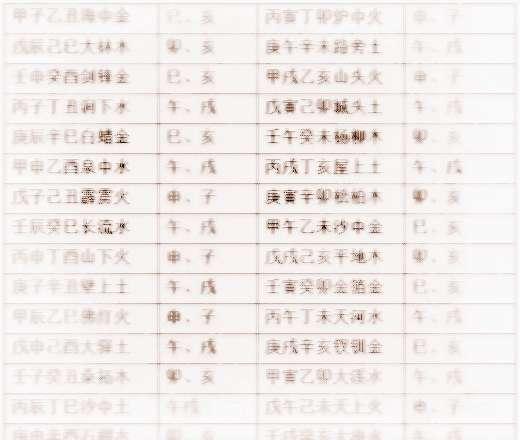 甲子乙丑海中金 巳、亥 丙寅丁卯炉中火 申、子
戊辰己巳大林木 卯、亥 庚午辛未路旁土 午、戌
壬申癸酉剑锋金 巳、亥 甲戌乙亥山头火 申、子
丙子丁丑涧下水 午、戌 戊寅己卯城头土 午、戌
庚辰辛巳白蜡金 巳、亥 壬午癸未杨柳木 卯、亥
甲申乙酉泉中水 午、戌 丙戌丁亥屋上土 午、戌
戊子己丑霹雳火 申、子 庚寅辛卯松柏木 卯、亥
壬辰癸巳长流水 午、戌 甲午乙未沙中金 巳、亥
丙申丁酉山下火 申、子 戊戌己亥平地木 卯、亥
庚子辛丑壁上土 午、戌 壬寅癸卯金箔金 巳、亥
甲辰乙巳佛灯火 申、子 丙午丁未天河水 午、戌
戊申己酉大驿土 午、戌 庚戌辛亥钗钏金 巳、亥
壬子癸丑桑柘木 卯、亥 甲寅乙卯大溪水 午、戌
丙辰丁巳沙中土 午戌 戊午己未天上火 申、子